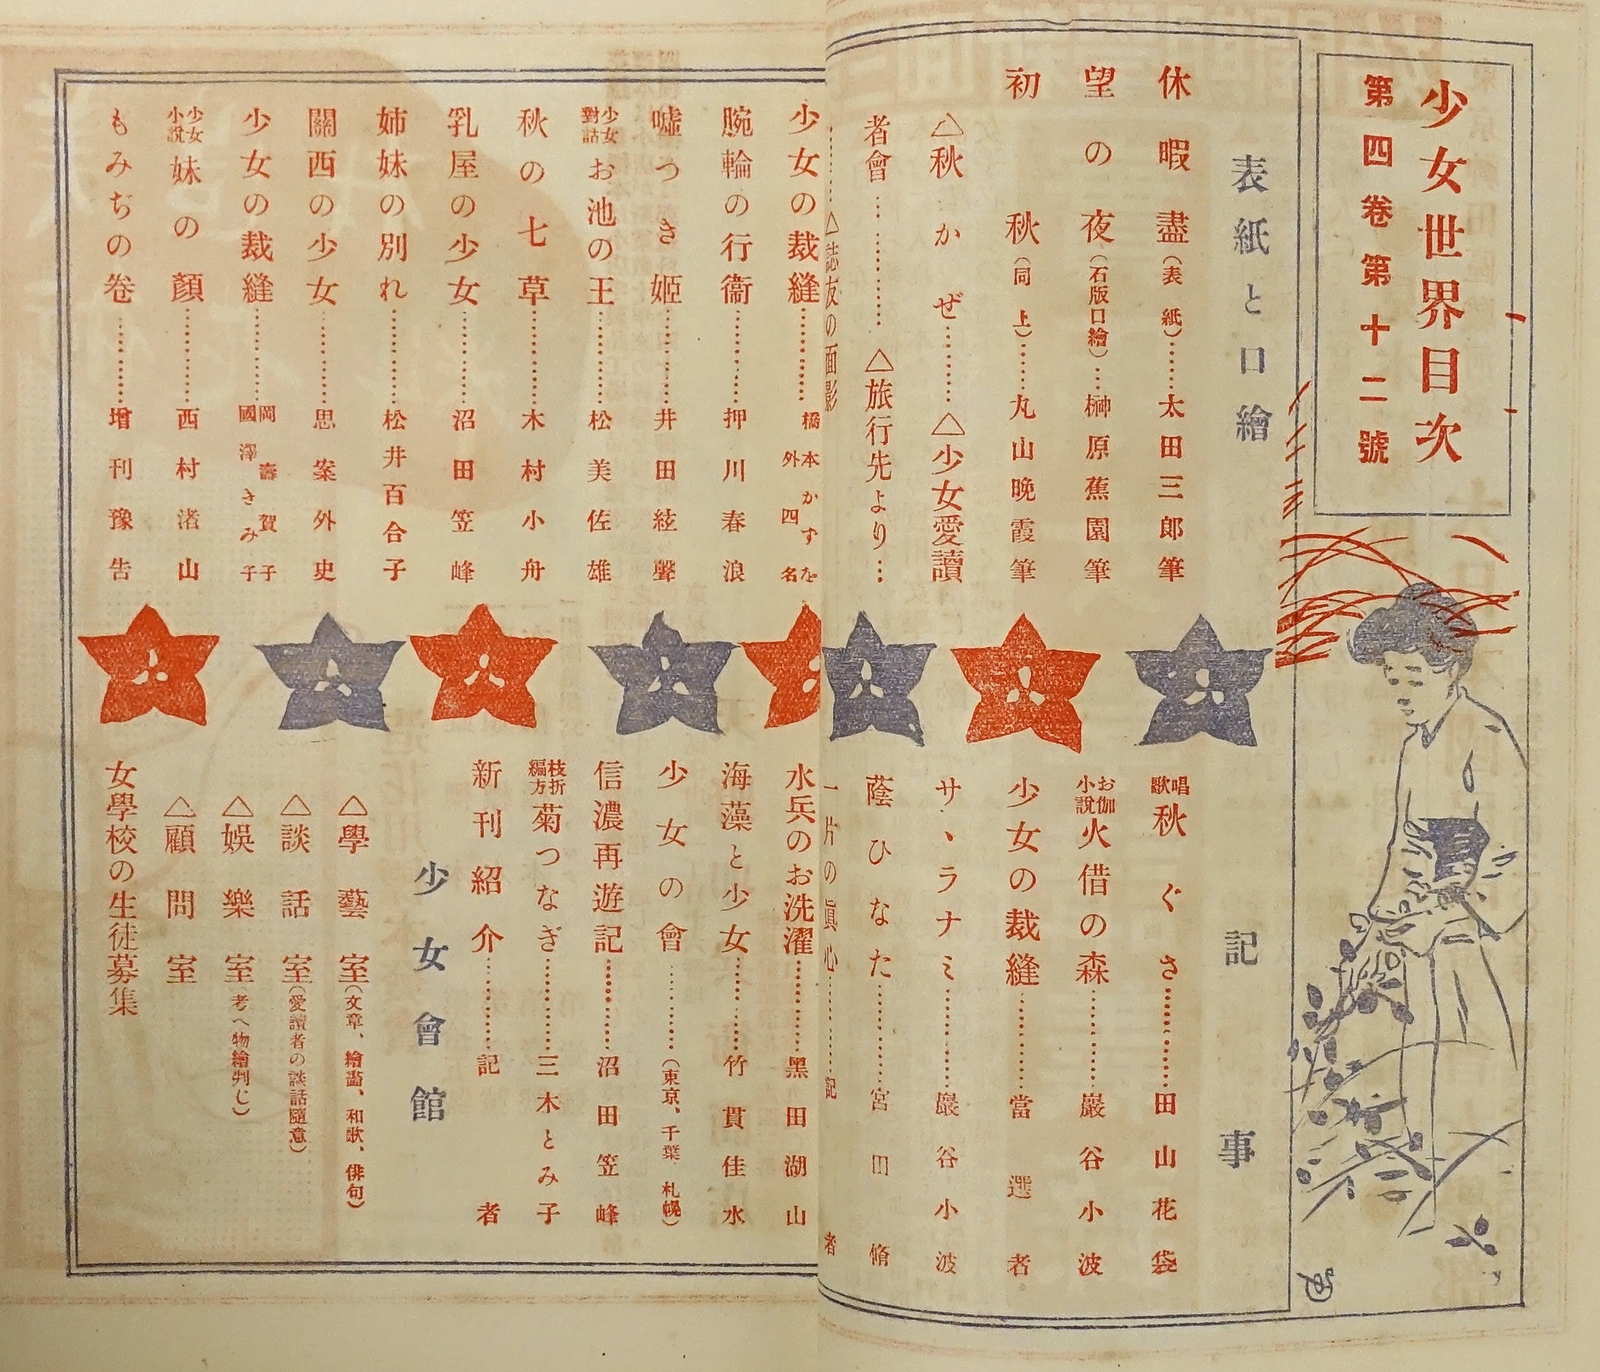 少女世界目次
第四卷第十二號
表紙と口繪
休暇盡(表紙)……太田三郎筆
望の夜(石版口繪)…榊原蕉園筆
初秋(同上)……丸山晩霞筆
△秋かぜ……△少女愛讀
者會…………△旅行先より…
……△誌友の面影
記事
唱歌 秋ぐさ…………田山花袋
お伽小説 火借の森…………巖谷小波
少女の裁縫…………當選者
サヽラナミ…………巖谷小波
蔭ひなた…………宮田脩
一片の眞心…………記者
少女の裁縫…………橋本かすを 外四名
腕輪の行衞…………押川春浪
嘘つき姬…………井田絃聲
少女對話 お池の王…………松美佐雄
秋の七草…………木村小舟
乳屋の少女…………沼田笠峰
姉妹の別れ…………松井百合子
關西の少女…………思案外史
少女の裁縫…………岡壽賀子 國澤きみ子
少女小説 妹の顏…………西村渚山
もみぢの卷…………增刊豫告
水兵のお洗濯…………黑田湖山
海藻と少女…………竹貫佳水
少女の會…………(東京、千葉、札幌)
信濃再遊記…………沼田笠峰
枝折編方 菊つなぎ…………三木とみ子
新刊紹介…………記者
少女會館
△學藝室(文章、繪畵、和歌、俳句)
△談話室(愛讀者の談話隨意)
△娛樂室(考へ物繪判じ)
△顧問室
女學校の生徒募集